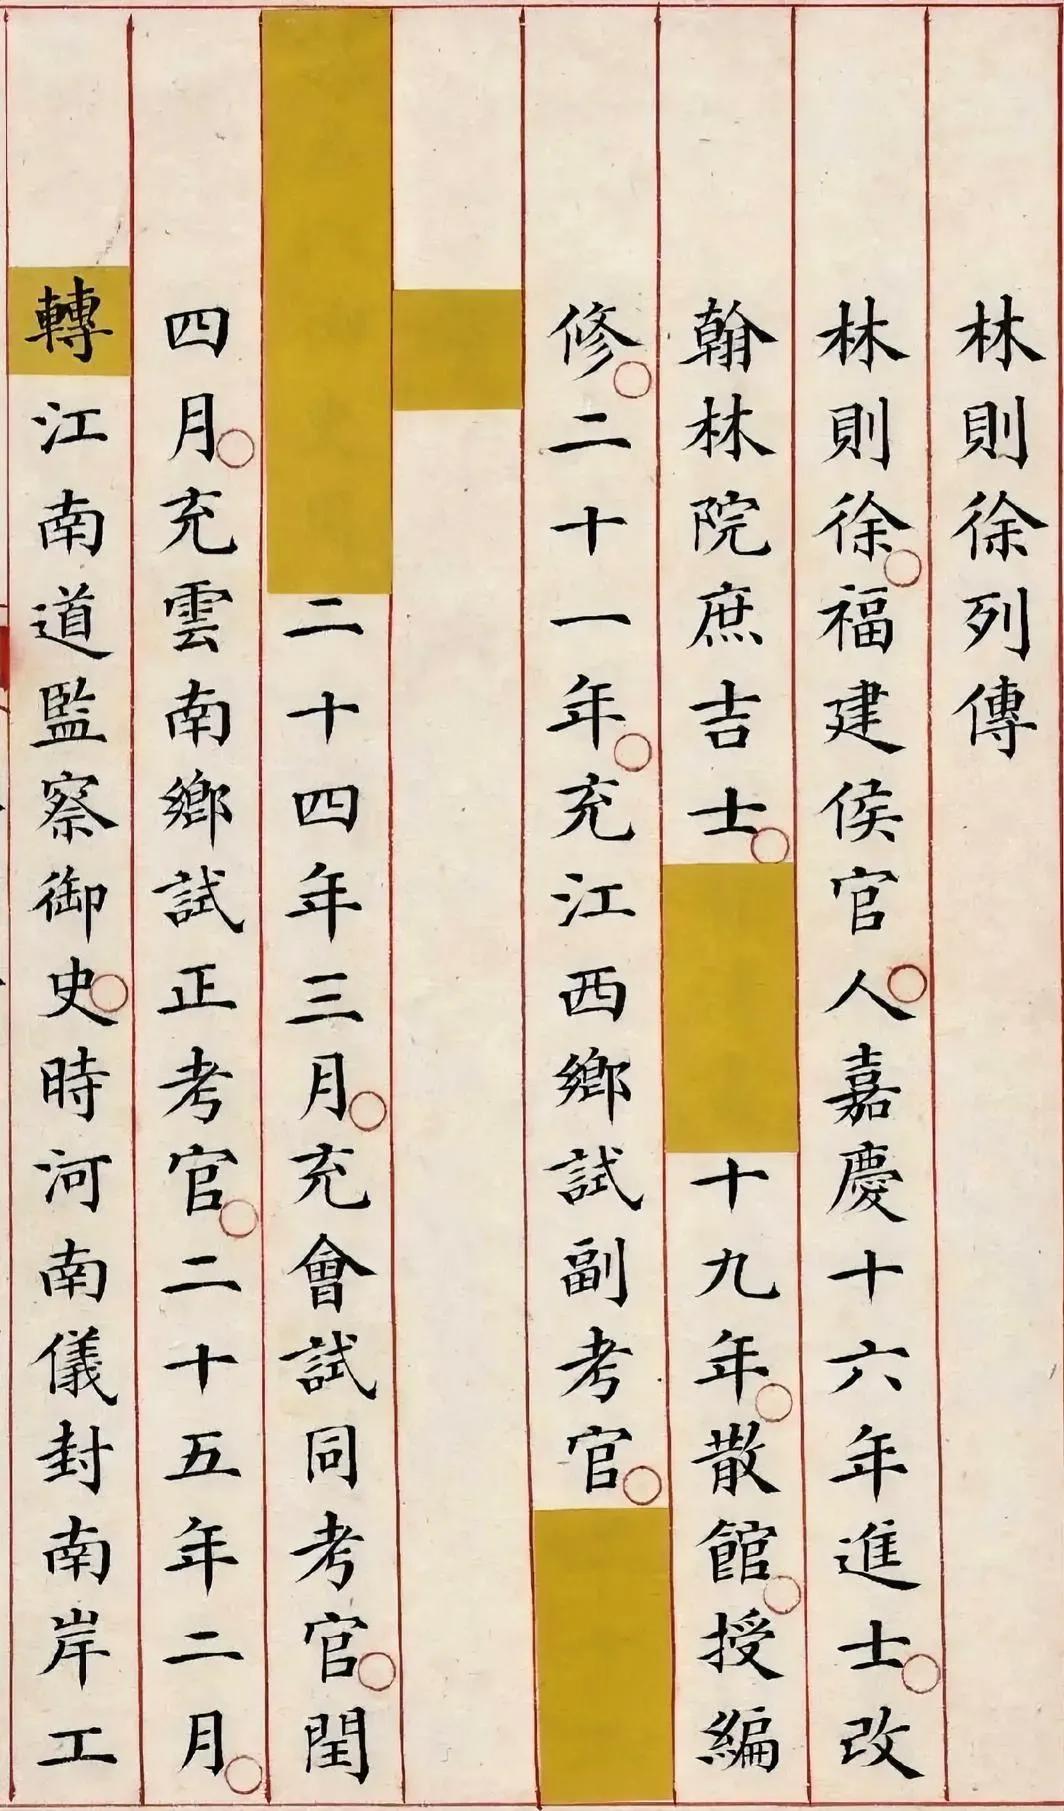 林則徐列傳
林則徐福建侯官人嘉慶十六年進士改
翰林院庶吉士十九年散館授編
修二十一年充江西鄉試副考官
二十四年三月充會試同考官閏
四月充雲南鄉試正考官二十五年二月
轉江南道監察御史時河南儀封南岸工